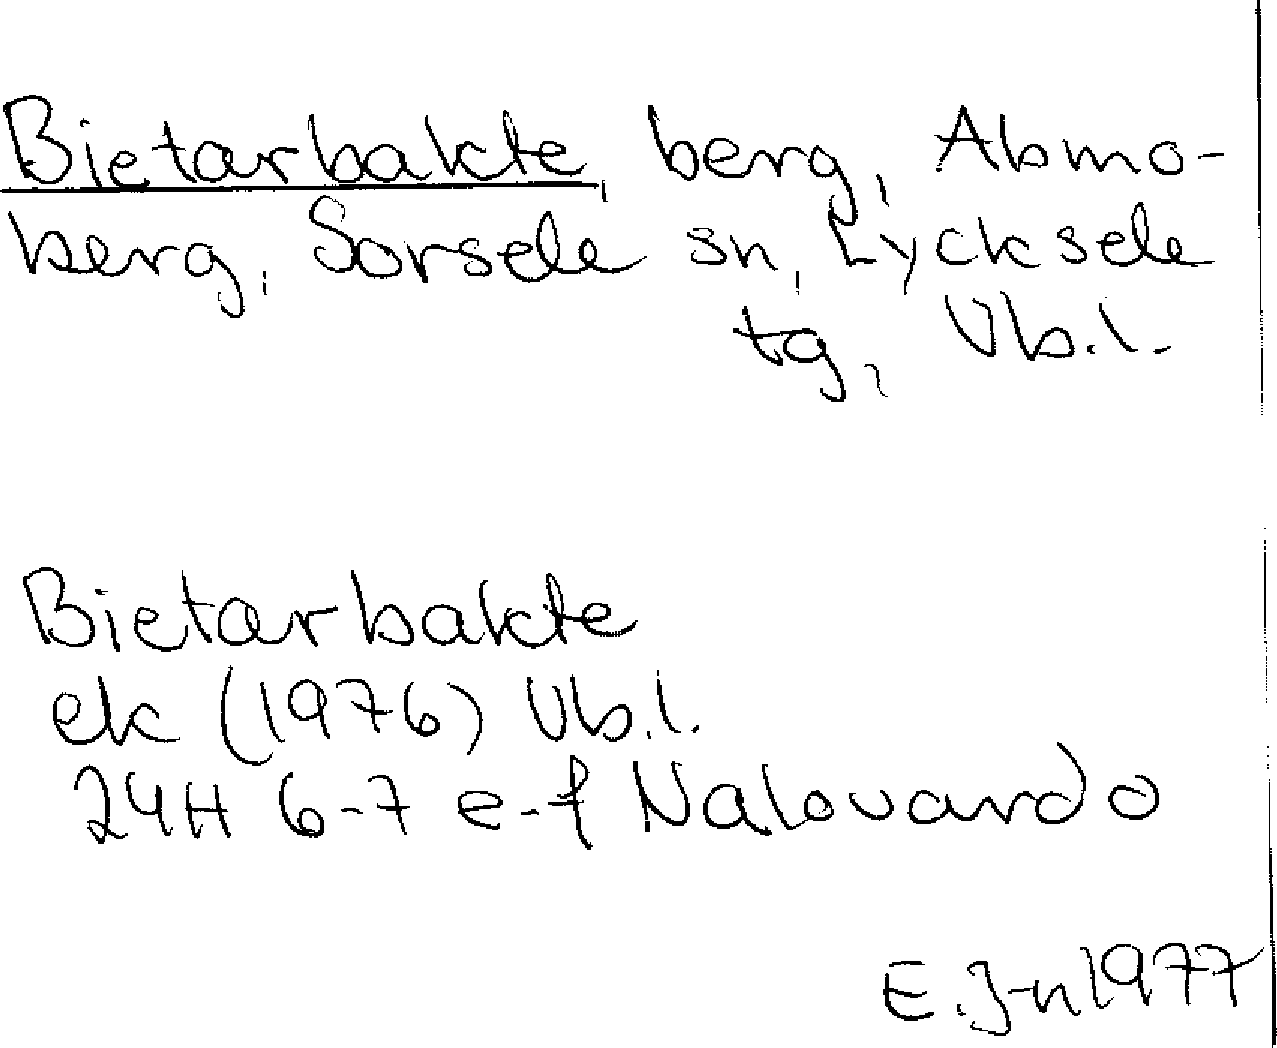 Bietarbakte, berg, Abmo-
berg, Sorsele sn, Lycksele
tg, Vb.l.
Bietarbakte
ek (1976) Vb.l.
24H 6-7 e-f Nalovardo
E.J-n 1977